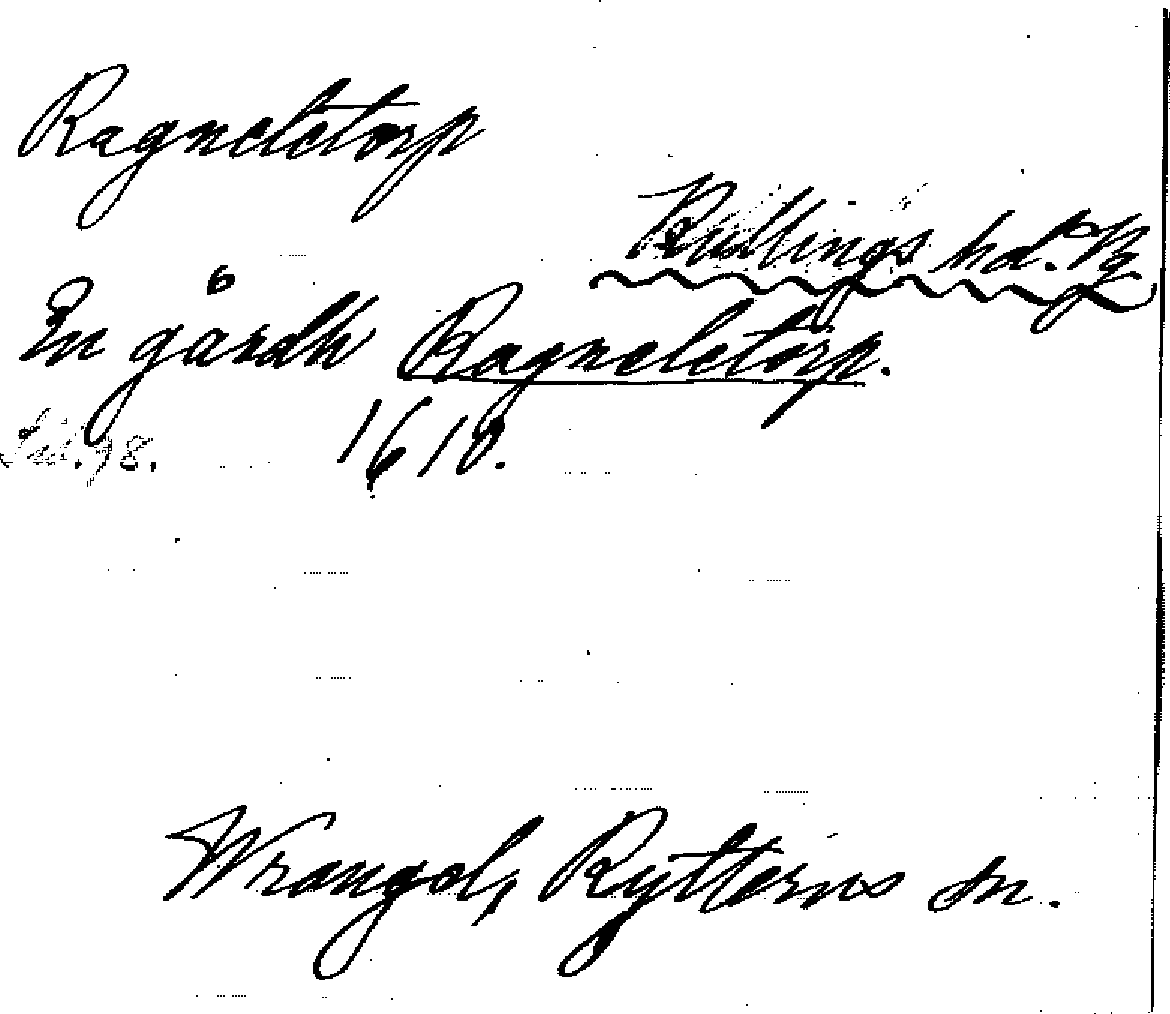 Ragneletorp
Kullings hd. Vg
En gårdh Ragneletorp.
Sid. 78. 1610.
Wrangel, Rytterns sn.